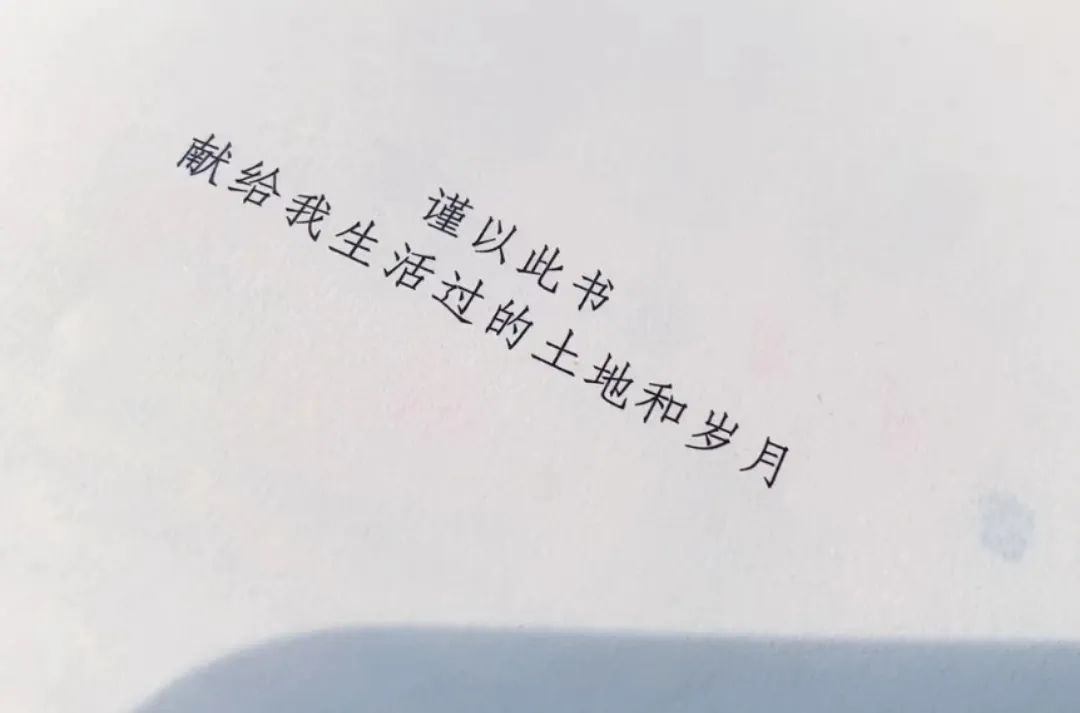 谨以此书
献给我生活过的土地和岁月